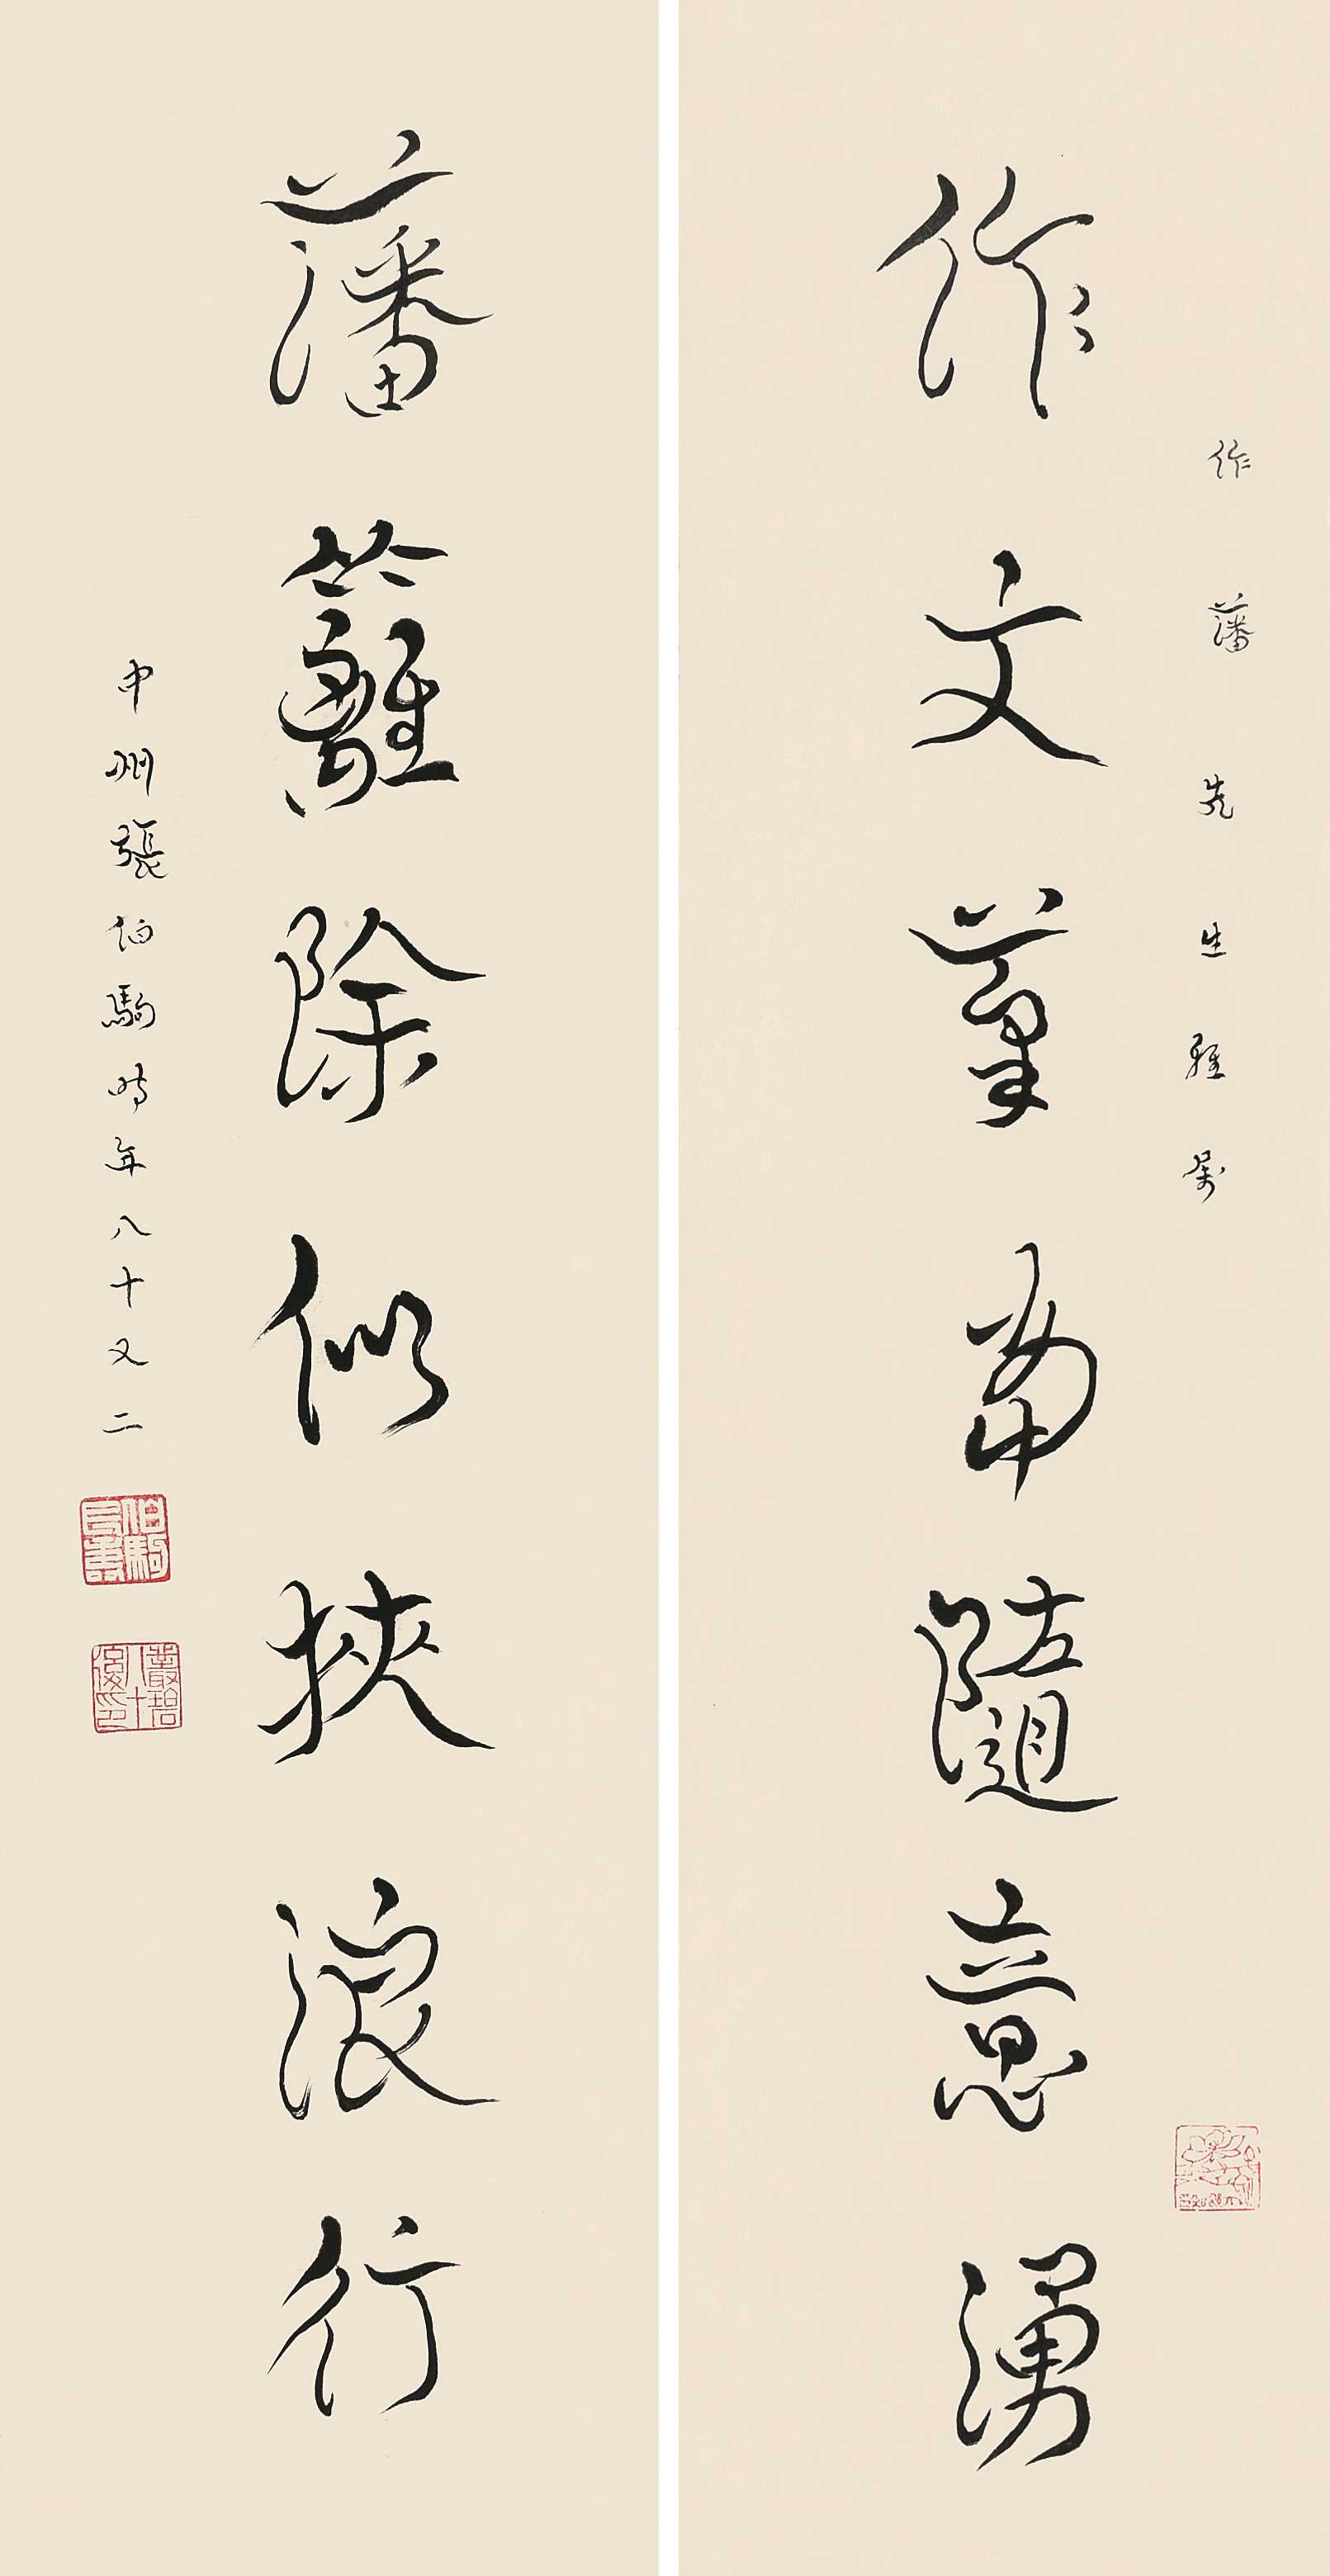 作藩先生雅屬
作文筆常隨意湧
藩籬除似挾浪行
中州張伯駒時年八十又二
伯駒
叢碧八十後印